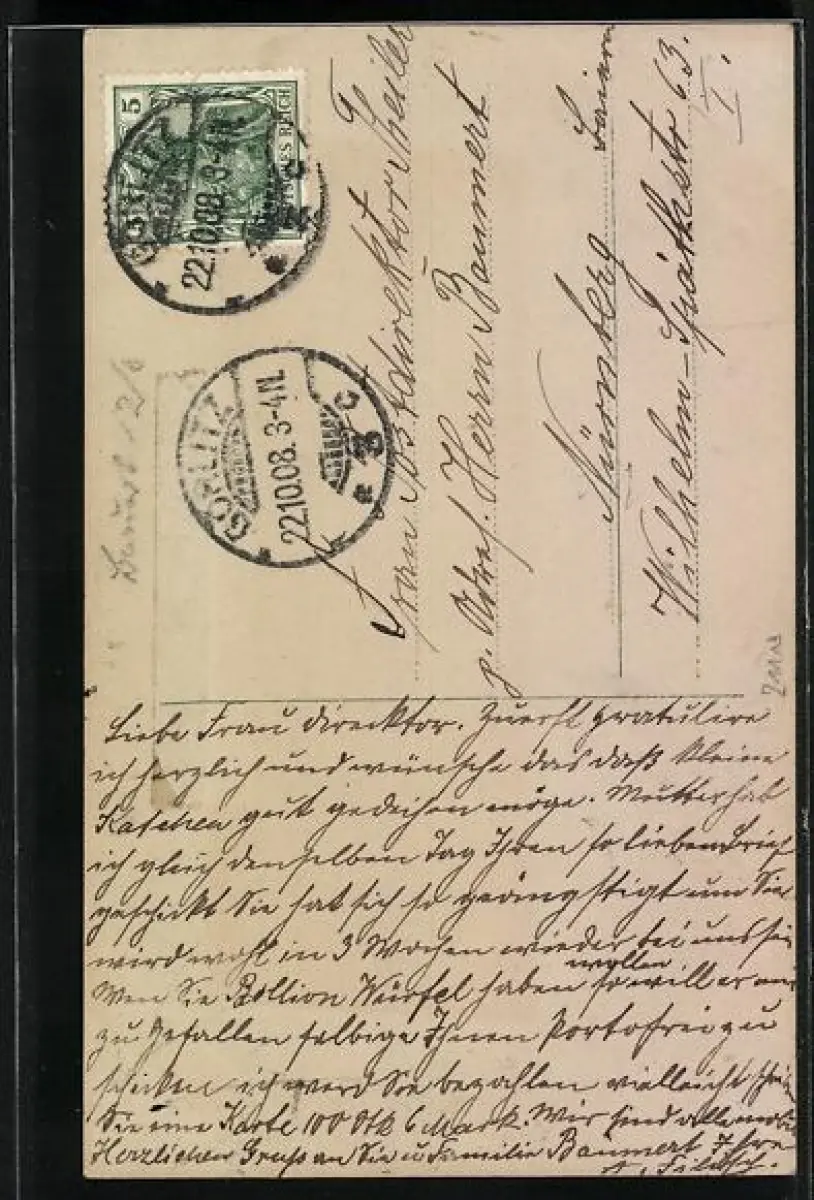 5
DEUTSCHES REICH
GÖRLITZ
22.10.08. 3-4N.
C
GÖRLITZ
22.10.08. 3-4N.
* 2 C
Frau Postdirektor Theiler
z. Adres. Herrn Baumert
Nürnberg Baiern
Wilhelm-Späthestr 63.
I.
Liebe Frau Direcktor. Zuerst gratulire
ich herzlich und wünsche das daß kleine
gut gedeihen möge. Mutter hab
ich gleich denselben Tag Ihren so lieben Brief
geschickt Sie hat sich so geängstigt um Sie
wird wohl in 3 Wochen wieder bei uns sein
Wen Sie Bollion Würfel haben wollen so will er mir
zu Gefallen selbige Ihnen Portofrei zu
schicken ich werd Sie bezahlen vielleicht
Sie eine Karte 100 Stk 6 Mark. Wir sind alle
Herzlichen Gruß an Sie u Familie Baumert Ihre